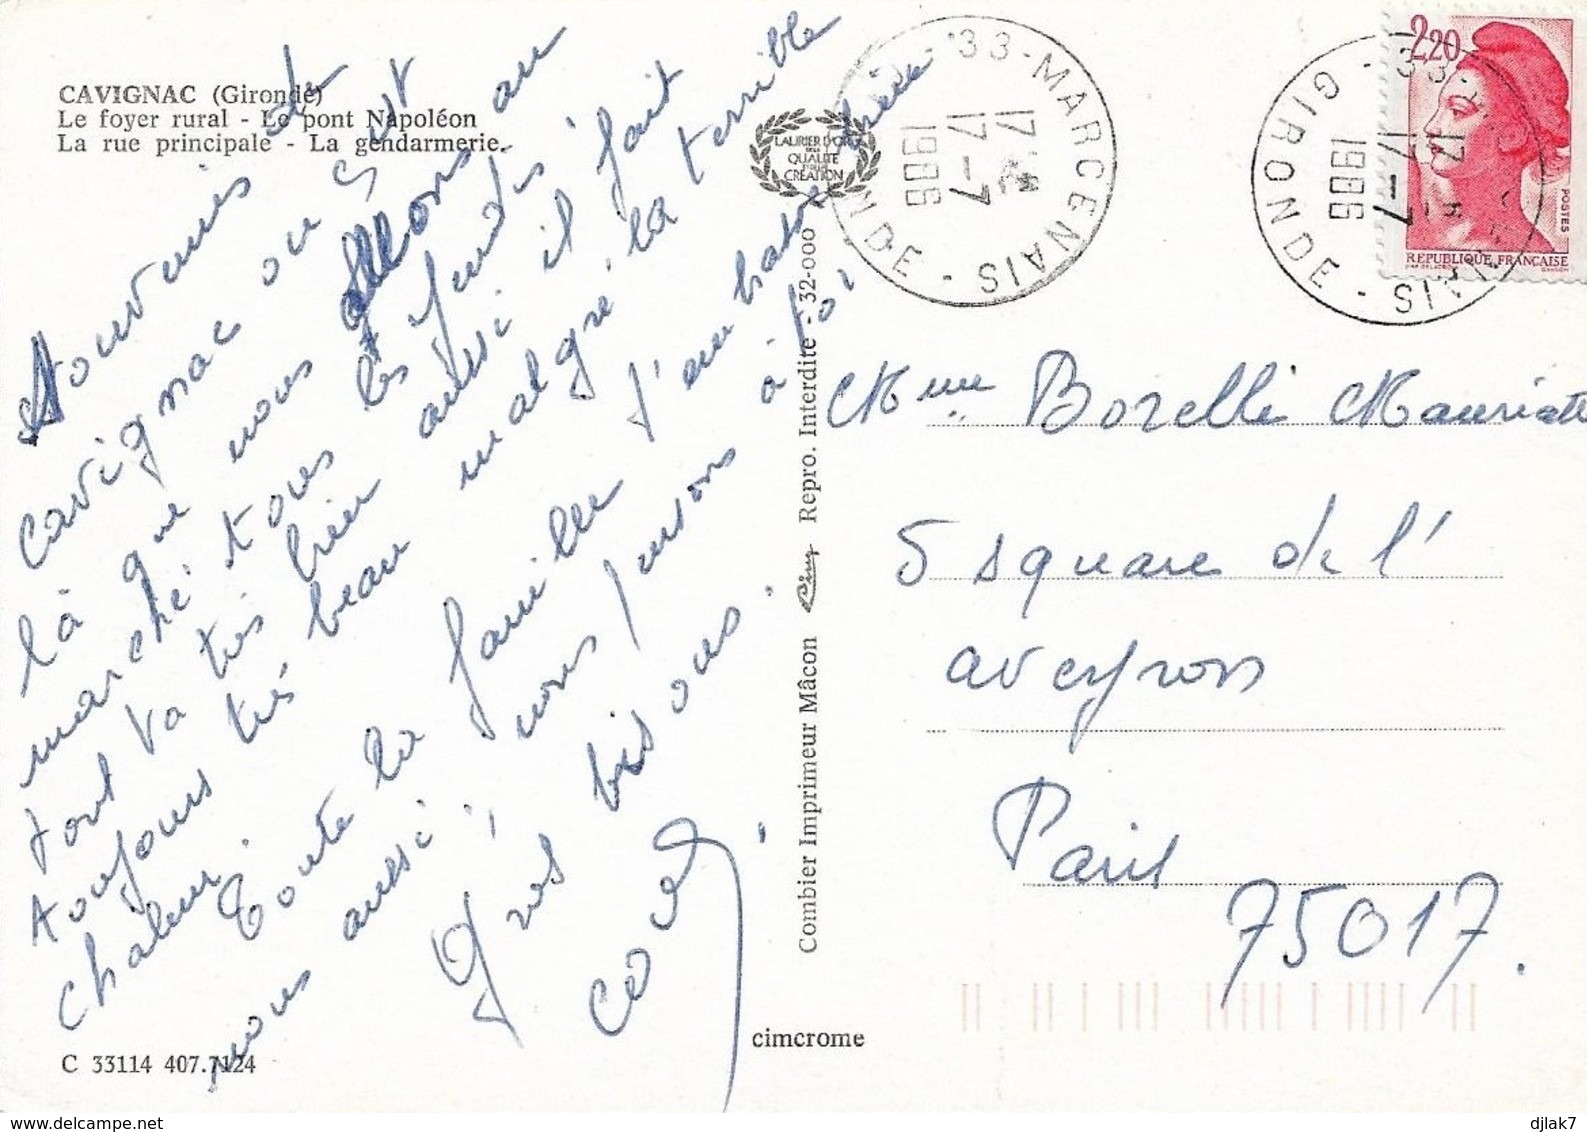 CAVIGNAC (Gironde)
Le foyer rural - Le pont Napoléon
La rue principale - La gendarmerie.
Souvenir de
Cavignac où c'est
là que nous allons au
marché tous les lundis
tout va très bien aussi il fait
toujours très beau malgré la terrible
chaleur.
Toute la famille t'embrasse bien
nous aussi, nous pensons à toi,
Gros bisous.
C 33114 407.7124
cimcrome
Combier Imprimeur Mâcon Repro. Interdite - 32-000
LAURIER D'OR
DE LA
QUALITÉ
CRÉATION
33-MARCENAIS
GIRONDE
17 H
17-7
1986
33-MARCENAIS
GIRONDE
17 H
17-7
1986
2,20
POSTES
REPUBLIQUE FRANCAISE
Mme Borelli Mauricette
5 square de l'
aveyron
Paris
75017.
delcampe.net
djlak7